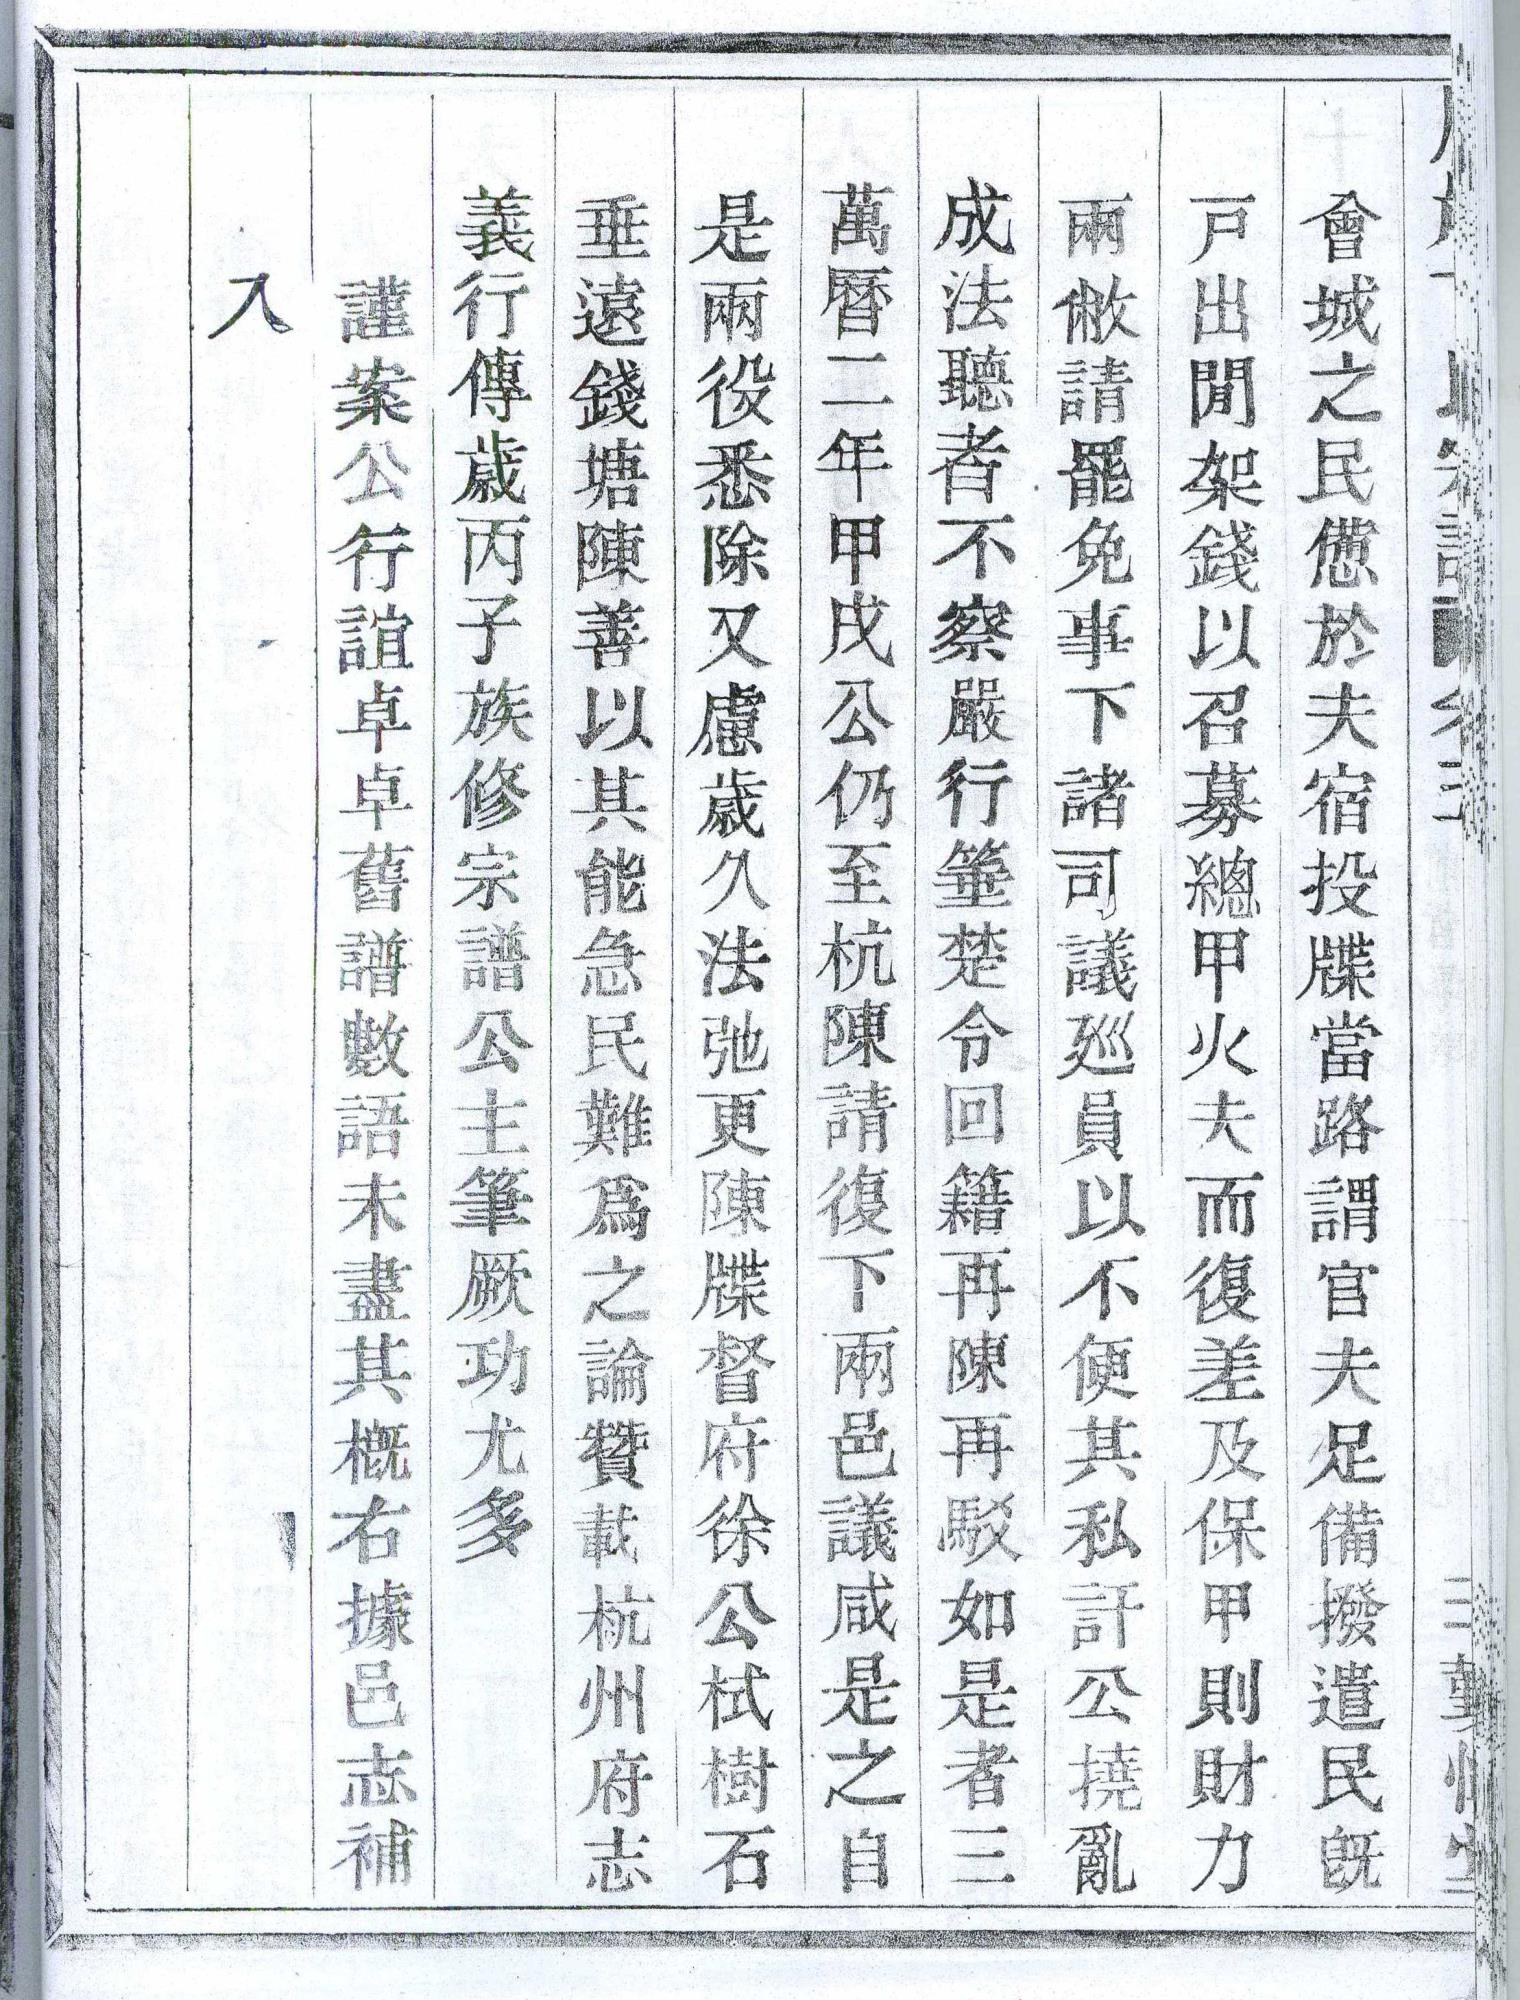 會城之民憊於夫宿投牒當路謂官夫足備撥遣民旣
戸出閒架錢以召募總甲火夫而復差及保甲則財力
兩敝請罷免事下諸司議廵員以不便其私訐公撓亂
成法聽者不察嚴行箠楚令回籍再陳再駁如是者三
萬曆二年甲戌公仍至杭陳請復下兩邑議咸是之自
是兩役悉除又慮歲久法弛更陳牒督府徐公栻樹石
垂遠錢塘陳善以其能急民難爲之論贊載杭州府志
義行傳歲丙子族修宗譜公主筆厥功尤多
謹案公行誼卓卓舊譜數語未盡其概右據邑志補
入